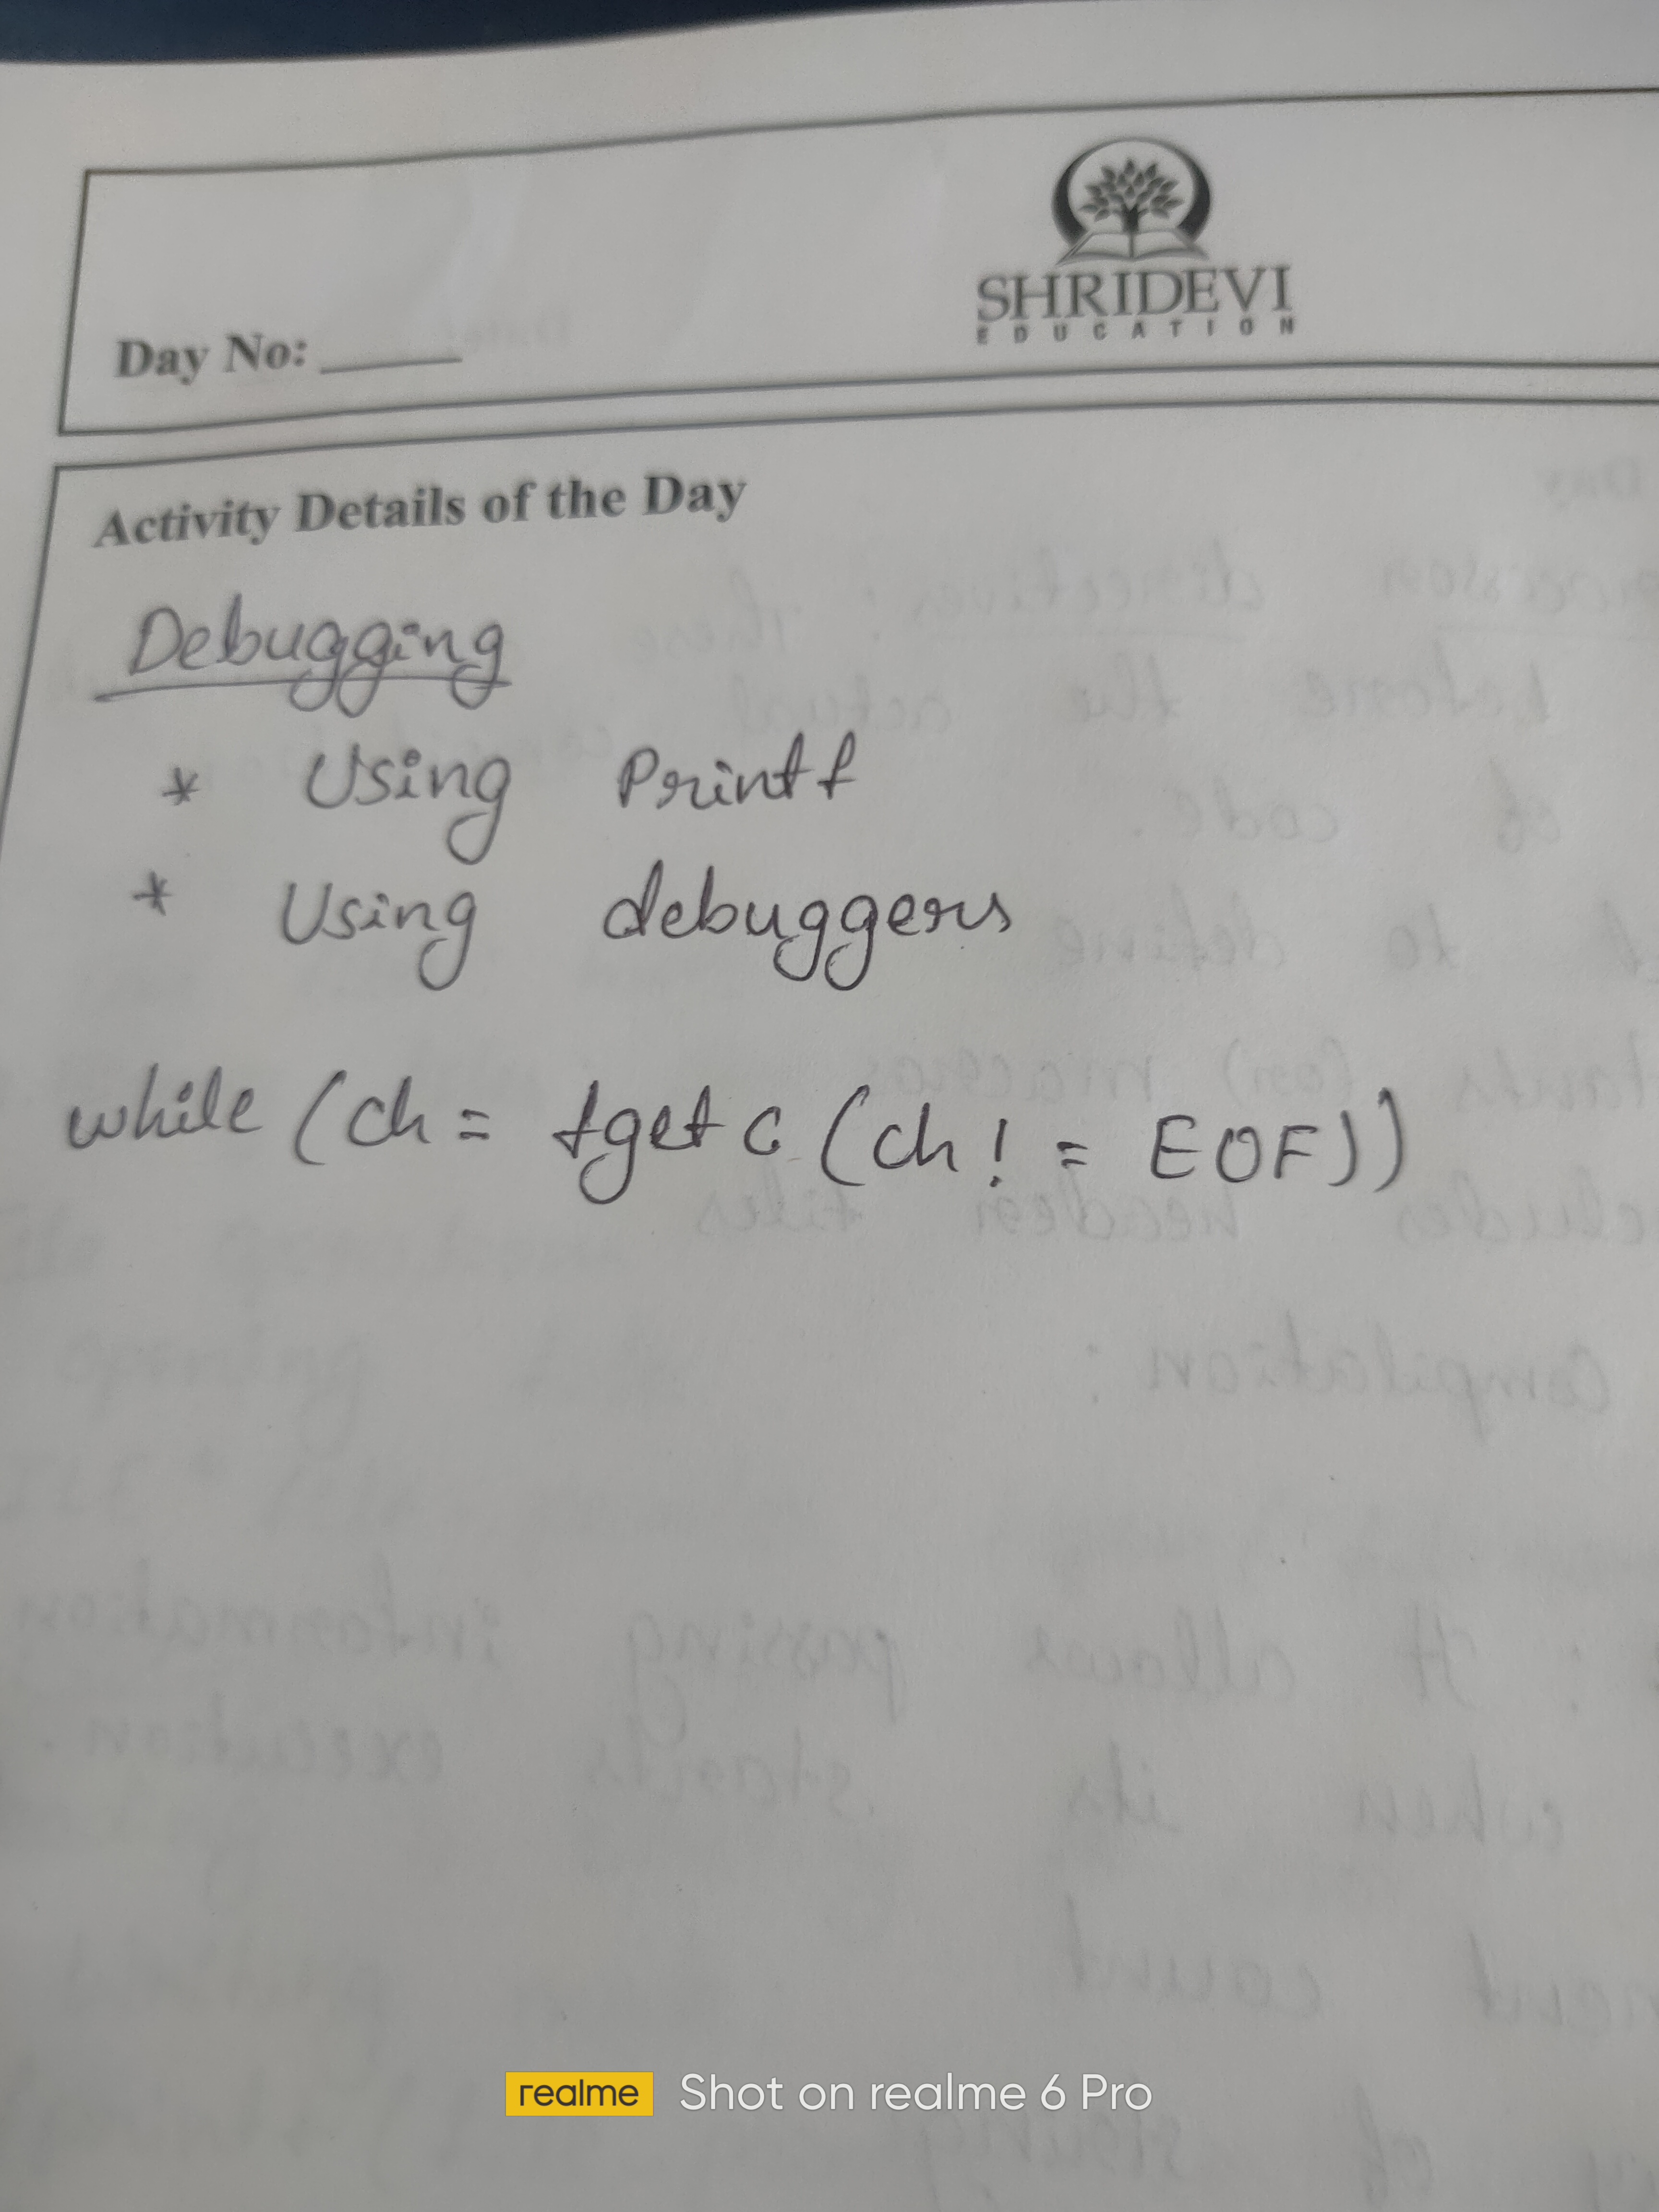 SHRIDEVI
EDUCATION
Day No:
Activity Details of the Day
Debugging
* Using Printf
* Using debuggers
while (ch = fgetc (ch! = EOF))
realme Shot on realme 6 Pro